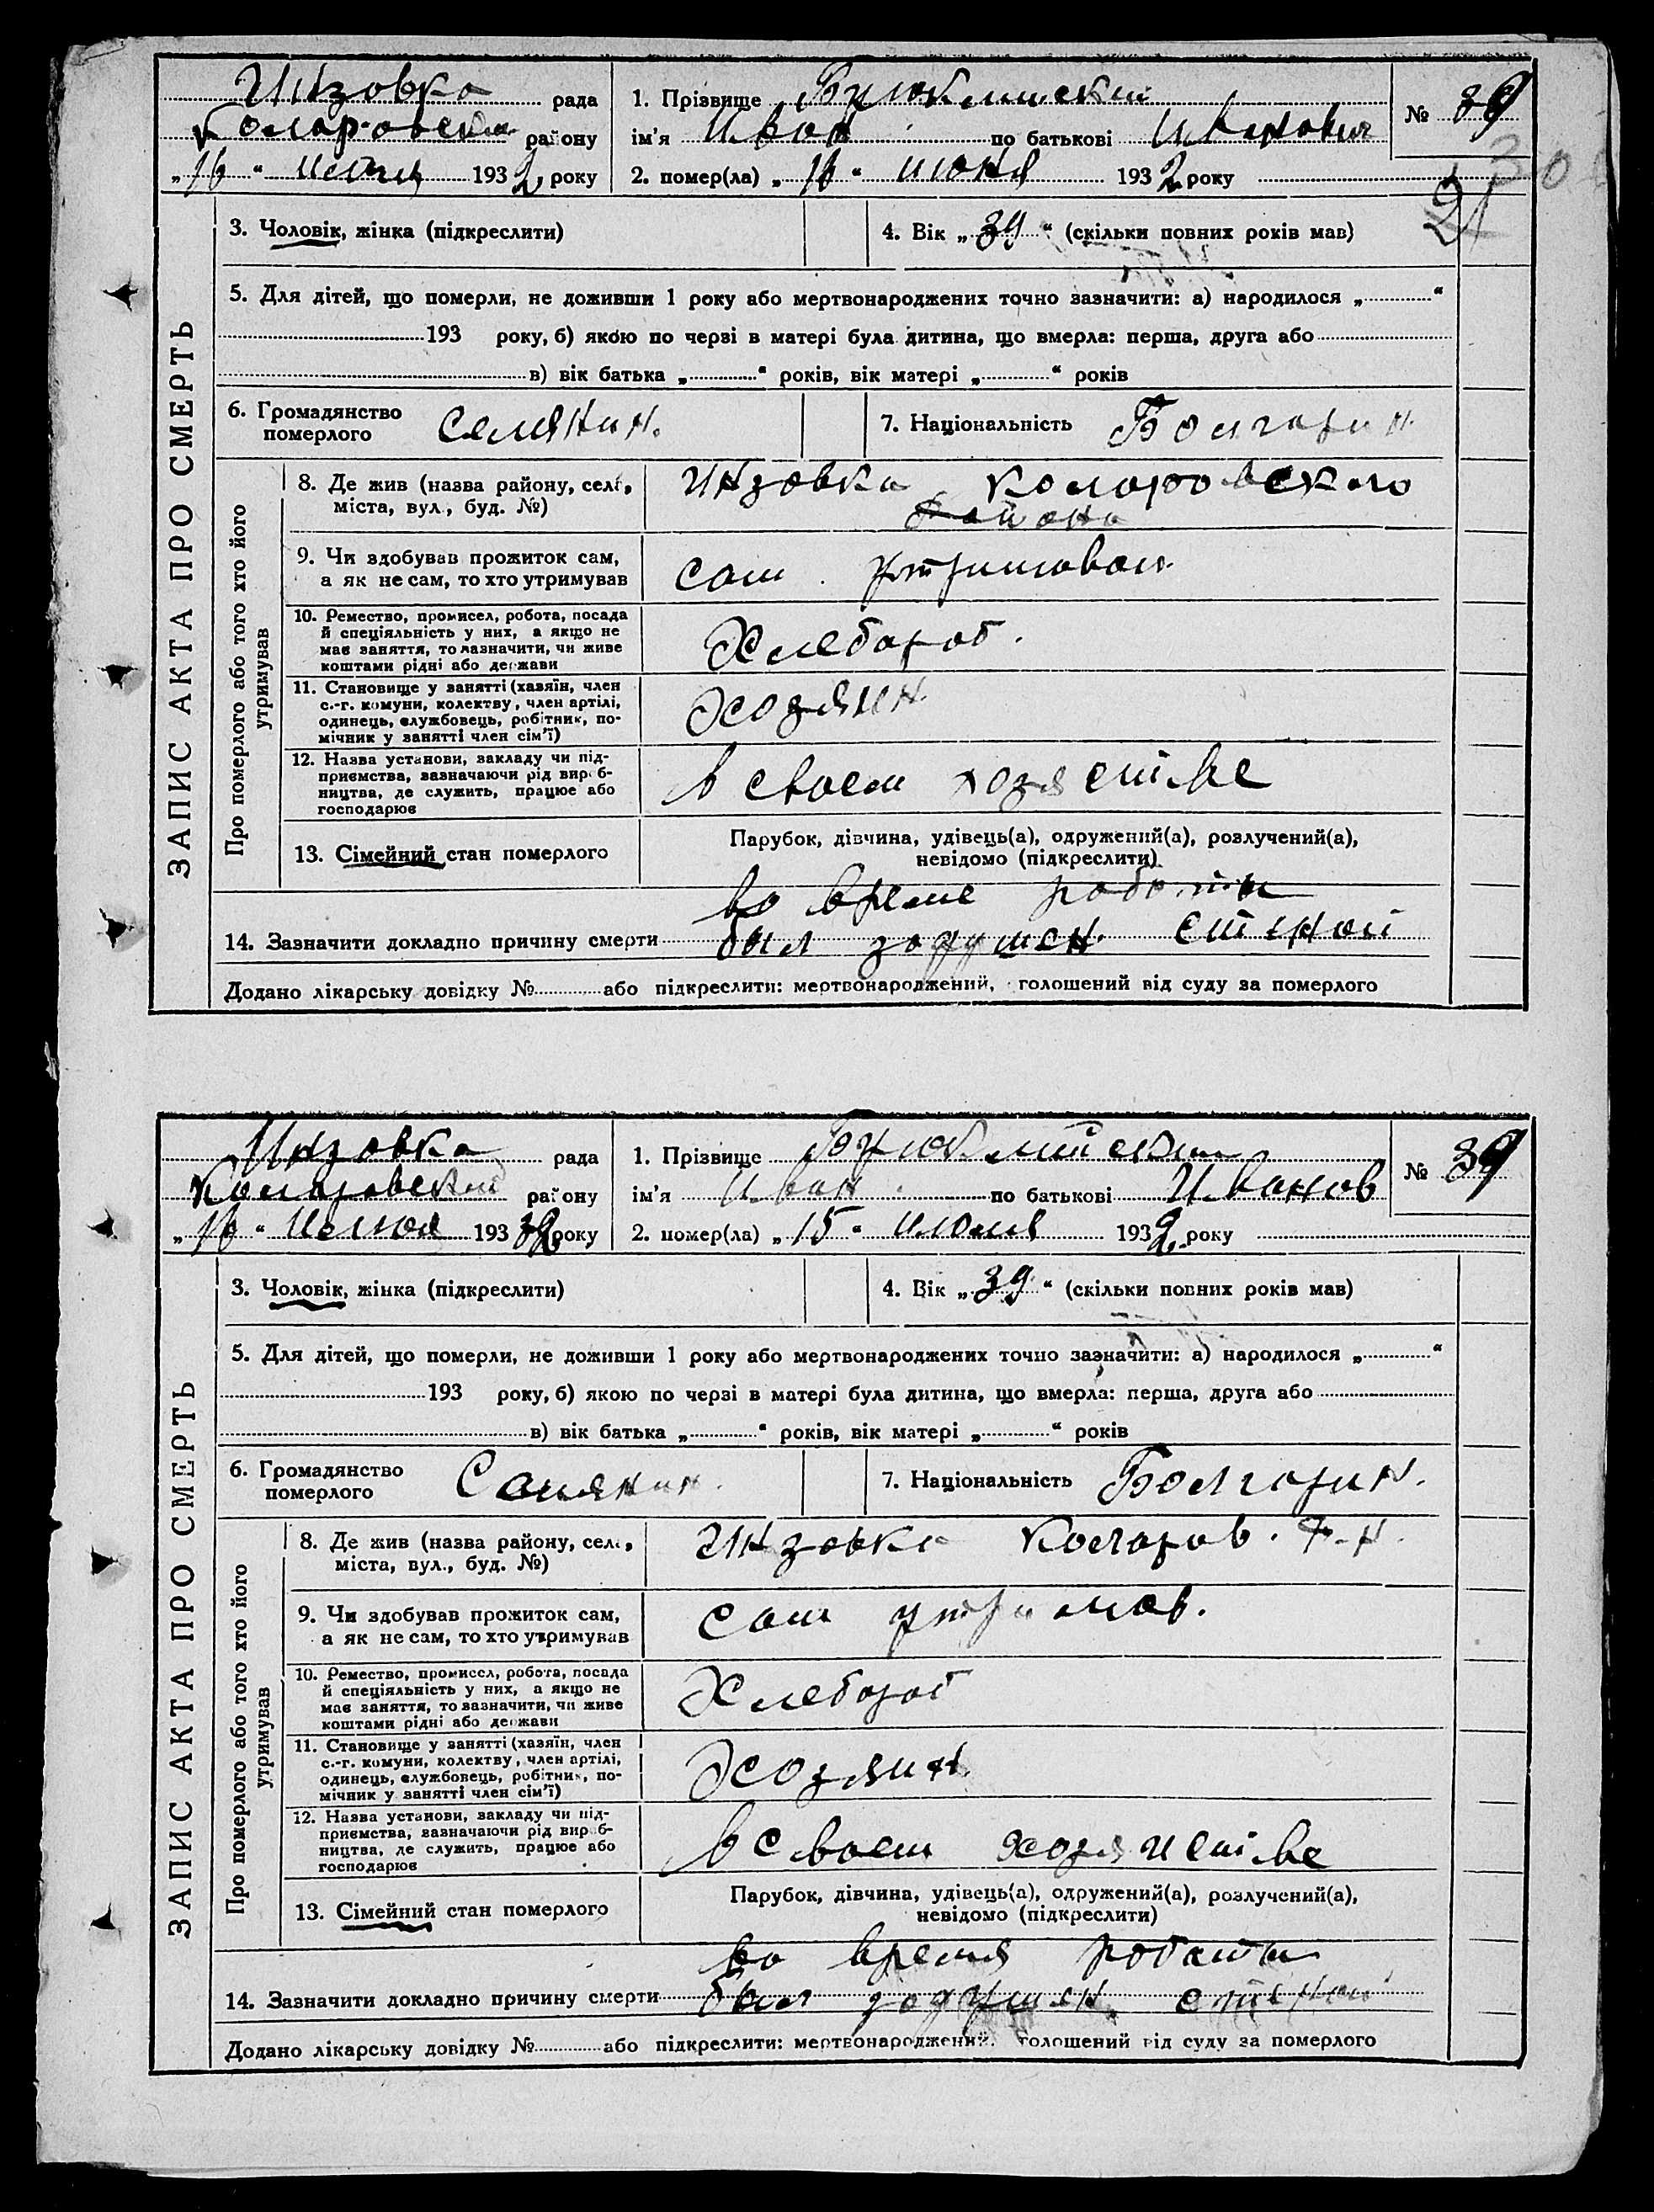 Инзовка рада
Коларовский району
„16“ июня 1932 року
1. Прізвище
ім'я Иван по батькові Иванович
2. помер(ла) „16“ июня 1932 року
№ 39
ЗАПИС АКТА ПРО СМЕРТЬ
3. Чоловік, жінка (підкреслити)
4. Вік „39“ (скільки повних років мав)
5. Для дітей, що померли, не доживши 1 року або мертвонароджених точно зазначити: а) народилося „ “
193 року, б) якою по черзі в матері була дитина, що вмерла: перша, друга або
в) вік батька „ “ років, вік матері „ “ років
6. Громадянство померлого Селянин.
7. Національність Болгарин
Про померлого або того хто його утримував
8. Де жив (назва району, селі,
міста, вул., буд. №)
Инзовка Коларовского
района
9. Чи здобував прожиток сам,
а як не сам, то хто утримував
сам утримовал
10. Ремество, промисел, робота, посада
й спеціяльність у них, а якщо не
має заняття, то зазначити, чи живе
коштами рідні або держави
Хлебороб.
11. Становище у занятті (хазяїн, член
с.-г. комуни, колектву, член артілі,
одинець, службовець, робітник, по-
мічник у занятті член сім'ї)
Хозяин
12. Назва установи, закладу чи під-
приємства, зазначаючи рід вироб-
ництва, де служить, працює або
господарює
в своем хозястве
13. Сімейний стан померлого
Парубок, дівчина, удівець(а), одружений(а), розлучений(а),
невідомо (підкреслити)
во време работи
14. Зазначити докладно причину смерти был задушен стеной
Додано лікарську довідку № або підкреслити: мертвонароджений, голошений від суду за померлого
Инзовка рада
Коларовский району
„16“ июля 193 32 року
1. Прізвище
ім'я Иван по батькові Иванов
2. помер(ла) „15“ июля 1932 року
№ 39
ЗАПИС АКТА ПРО СМЕРТЬ
3. Чоловік, жінка (підкреслити)
4. Вік „39“ (скільки повних років мав)
5. Для дітей, що померли, не доживши 1 року або мертвонароджених точно зазначити: а) народилося „ “
193 року, б) якою по черзі в матері була дитина, що вмерла: перша, друга або
в) вік батька „ “ років, вік матері „ “ років
6. Громадянство померлого Селянин.
7. Національність Болгарин.
Про померлого або того хто його утримував
8. Де жив (назва району, селі,
міста, вул., буд. №)
Инзовка Коларов. р-н.
9. Чи здобував прожиток сам,
а як не сам, то хто утримував
сам утримов.
10. Ремество, промисел, робота, посада
й спеціяльність у них, а якщо не
має заняття, то зазначити, чи живе
коштами рідні або держави
Хлебороб
11. Становище у занятті (хазяїн, член
с.-г. комуни, колектву, член артілі,
одинець, службовець, робітник, по-
мічник у занятті член сім'ї)
Хозяин
12. Назва установи, закладу чи під-
приємства, зазначаючи рід вироб-
ництва, де служить, працює або
господарює
в своем хозяистве
13. Сімейний стан померлого
Парубок, дівчина, удівець(а), одружений(а), розлучений(а),
невідомо (підкреслити)
во время работы
14. Зазначити докладно причину смерти был задушен стеной
Додано лікарську довідку № або підкреслити: мертвонароджений, голошений від суду за померлого